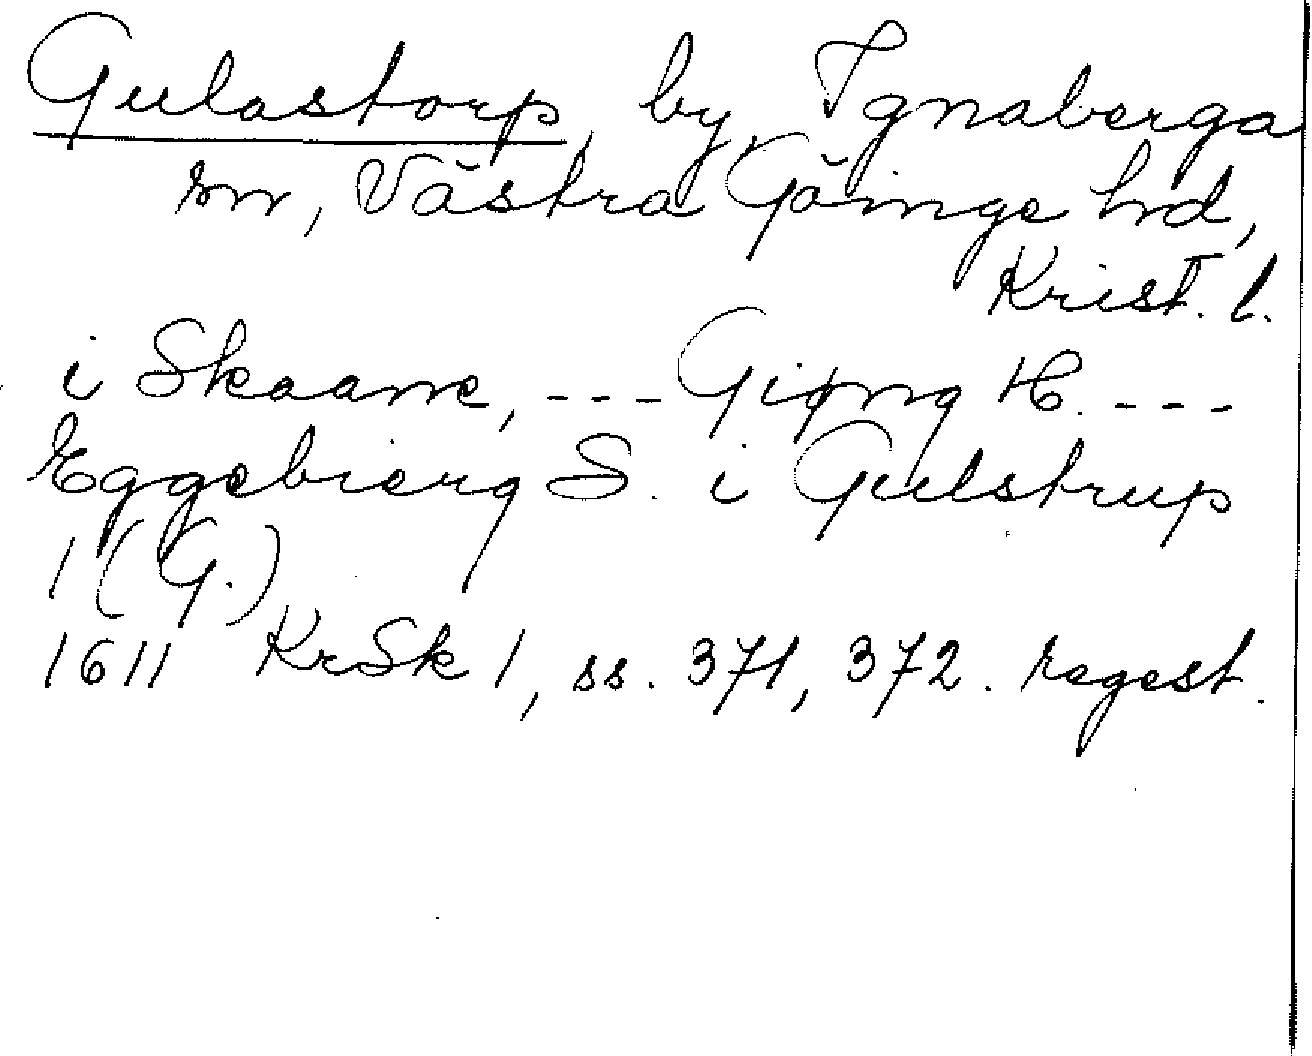 Gulastorp, by, Ignaberga
sn, Västra Göinge hd,
Krist. l.
i Skaane, --- Giøng H. ---
Eggebierg S. i Gulstrup
1 (G.)
1611 KrSk 1, ss. 371, 372. regest.